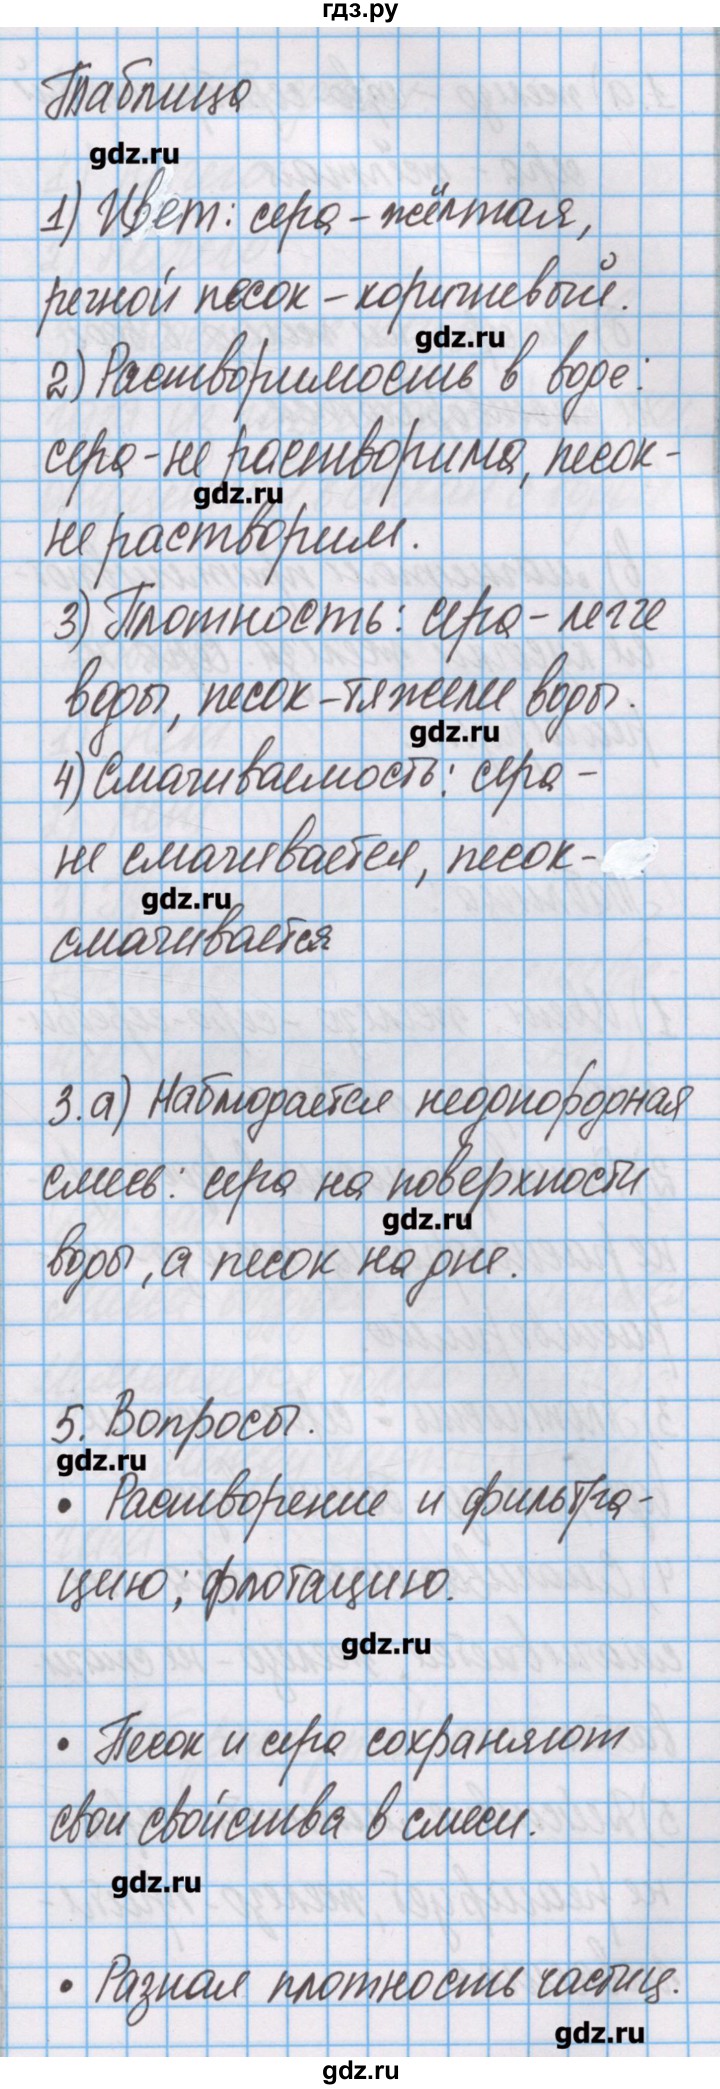 гдз.ру
Таблица
gdz.ru
1) Цвет: сера - жёлтая,
речной песок - коричневый.
gdz.ru
2) Растворимость в воде:
сера - не растворима, песок -
gdz.ru
не растворим.
3) Плотность: сера - легче
воды, песок - тяжелее воды.
gdz.ru
4) Смачиваемость: сера -
не смачивается, песок -
gdz.ru
смачивается
3. а) Наблюдается неоднородная
смесь: сера на поверхности
gdz.ru
воды, а песок на дне.
5. Вопросы.
gdz.ru
• Растворение и фильтра-
цию; флотацию.
gdz.ru
• Песок и сера сохраняют
свои свойства в смеси.
gdz.ru
• Разная плотность частиц.
gdz.ru
gdz.ru